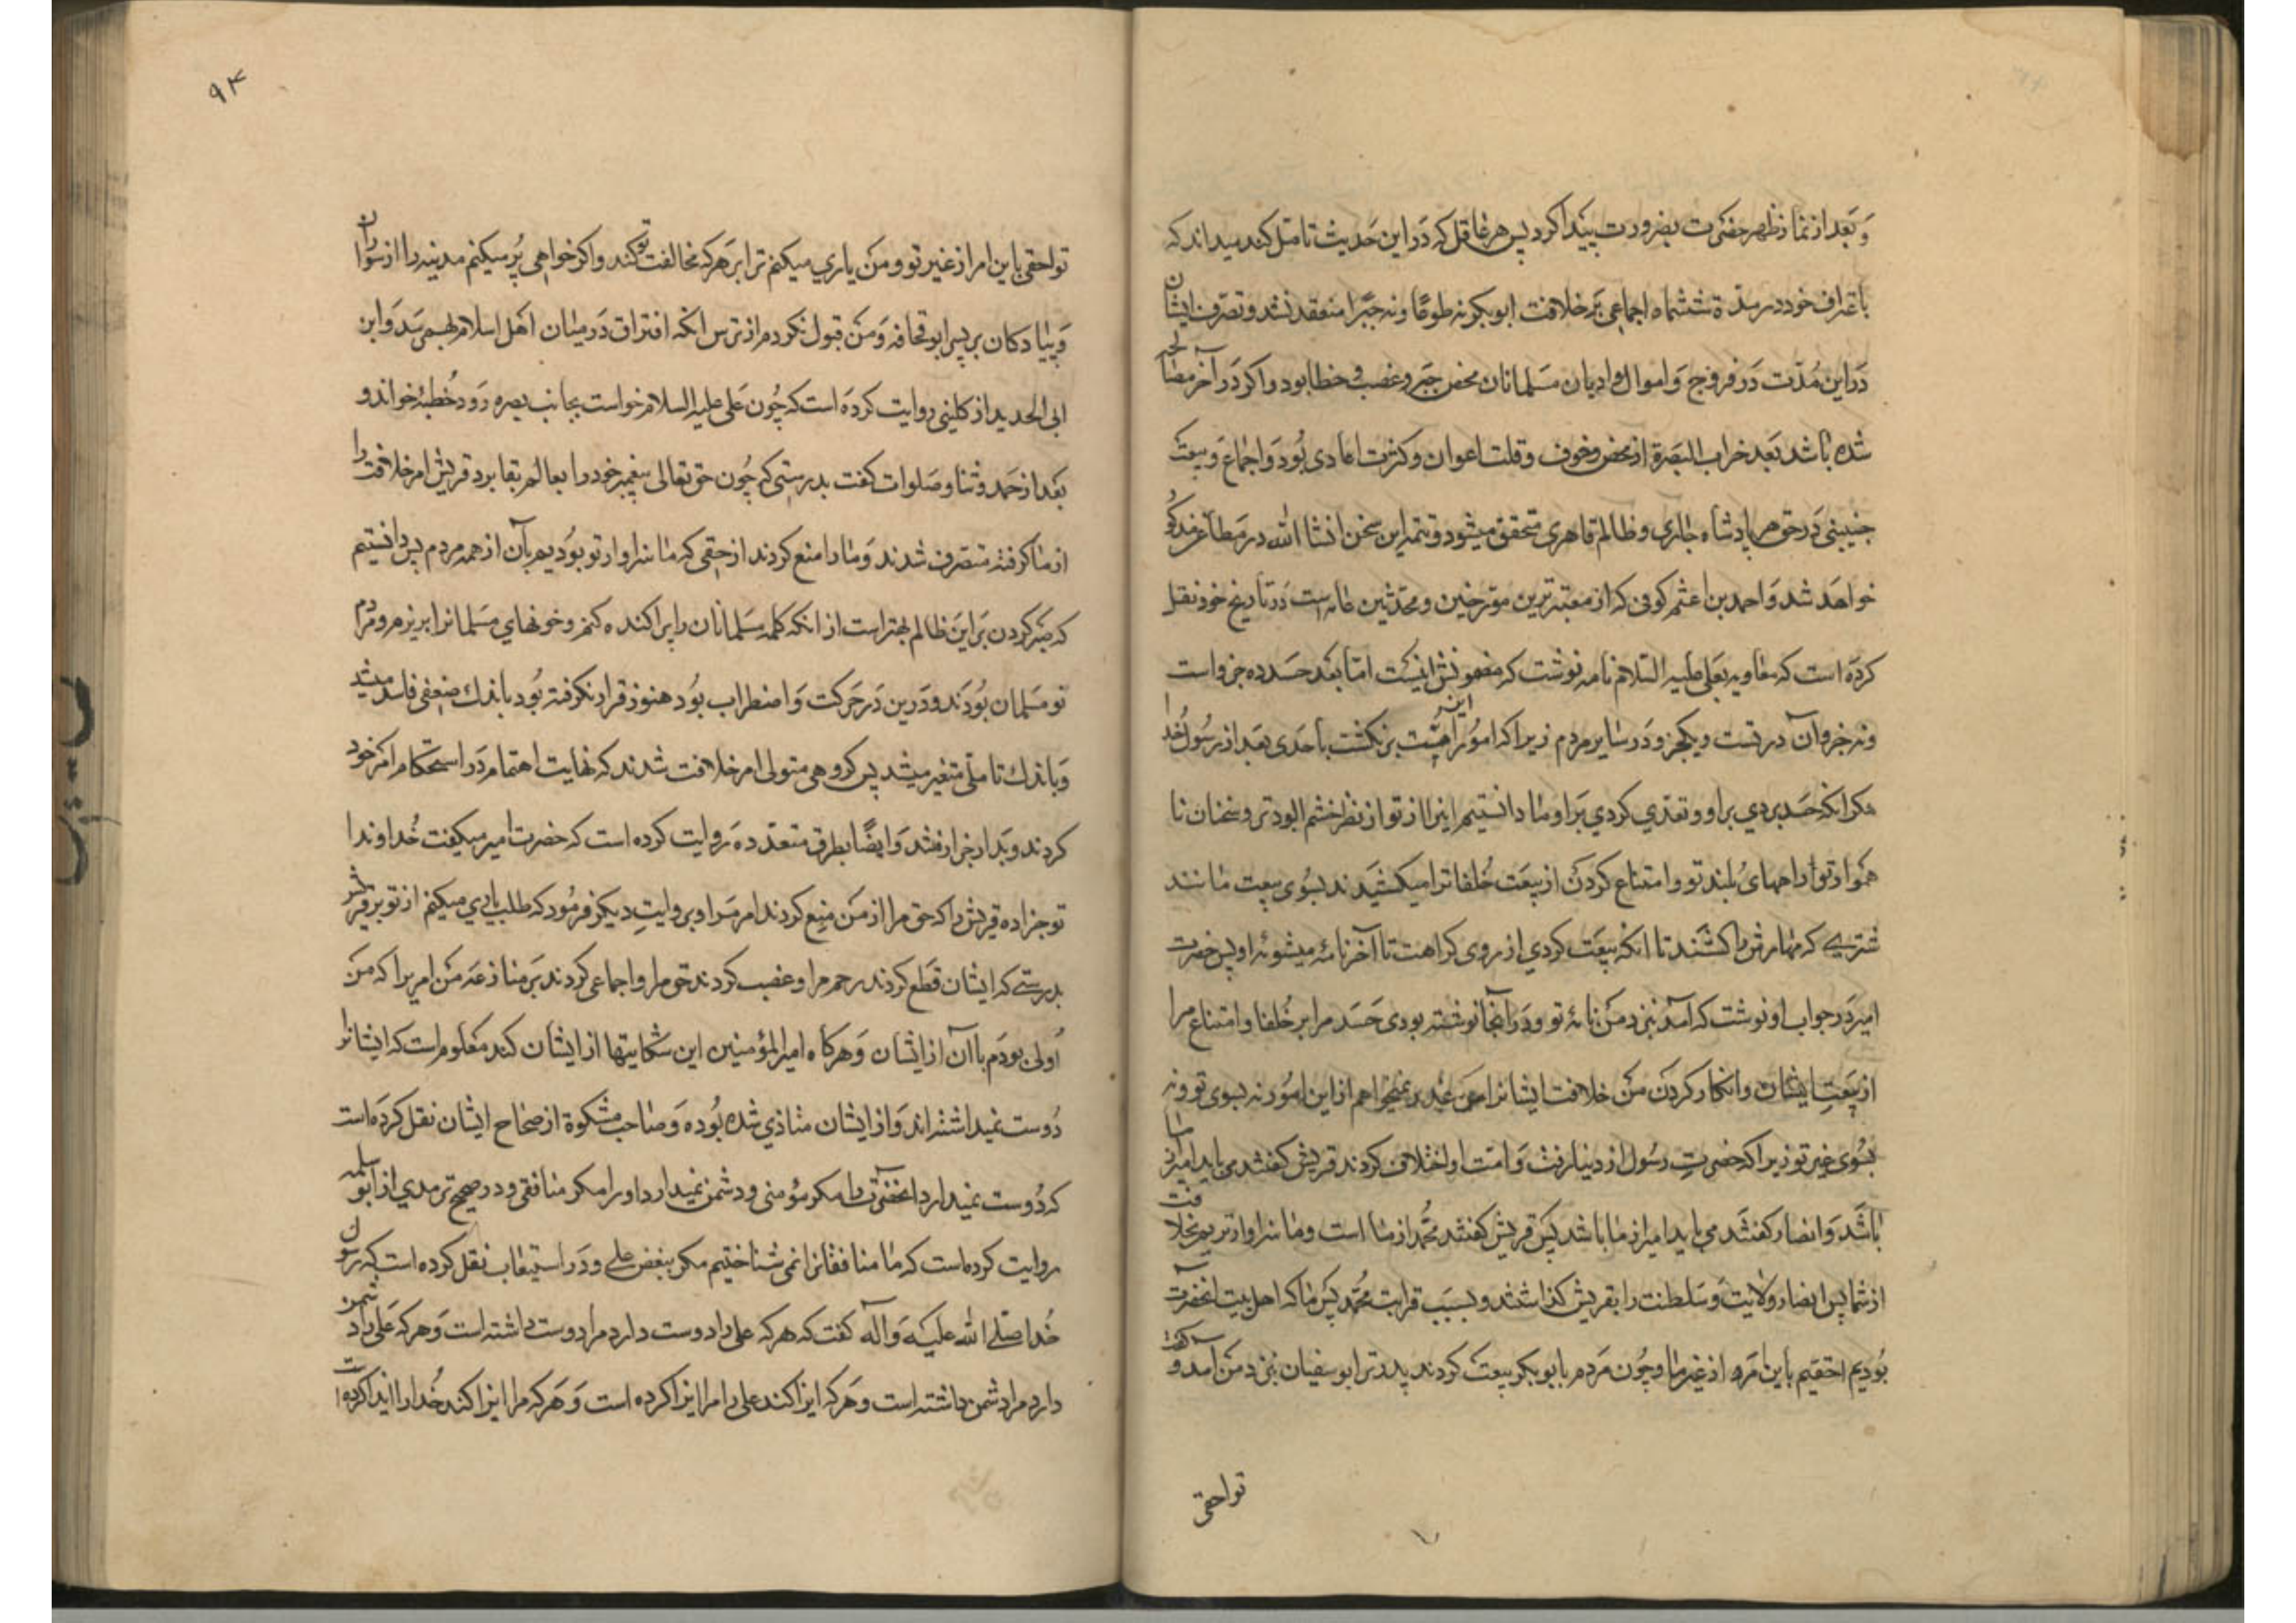 و بعد از نماز ظهر حضرت بضرورت بیعت کرد پس هر عاقل که در این حدیث تامل کند میداند که
باعتراف خود در مدة ششماه اجماعی بر خلافت ابوبکر نه طوعًا و نه جبرًا منعقد نشد و تصرف ایشان
در این مُدّت در فروج و اموال و ادیان مسلمانان محض جبر و غصب و خطا بود و اکر در آخر مصالحه
شده باشد بعد خراب البصرة از محض خوف و قلت اعوان و کثرت اعادی بُود و اجماع و بیعت
چنینی در حق هر پادشاه جابری و ظالم قاهری متحقق میشود و تتمه این سخن انشا الله در مطاعن مذکور
خواهد شد و احمد بن اعثم کوفی که از معتبرترین مورخین و محدثین عامه است در تاریخ خود نقل
کرده است که معاویه بعلی علیه السلام نامه نوشت که مضمونش اینست اما بعد حسد ده جزو است
و نه جزو آن در تست و یکجزو در سایر مردم زیرا که امور این امّت برنکشت باحدی بعد از رسول خدا
مکر انکه حسد بردی بر او و تعدّی کردی بر او و ما دانستیم اینرا از تو از نظر خشم الود تو و سخنان نا
هموار تو و اههای بلند تو و امتناع کردن از بیعت خُلفا ترا میکشیدند بسُوی بیعت مانند
شتری که مهارش را کشند تا انکه بیعت کردی از روی کراهت تا آخر نامه میشومه او پس حضرت
امیر در جواب او نوشت که آمد بنزد من نامهٔ تو و در آنجا نوشته بودی حسد مرا بر خُلفا و امتناع مرا
از بیعت ایشان و انکار کردن من خلافت ایشانرا من عذر نمیخواهم از این امور نه بسوی تو و نه
بسُوی غیر تو زیرا که حضرت رسول از دنیا رفت و امت او اختلاف کردند قریش کفتند می باید امیر از ما
باشد و انصار کفتند می باید امیر از ما باشد پس قریش کفتند محمد از ما است و ما سزاوارتریم بخلافت
از شما پس انصار ولایت و سلطنت را بقریش کذاشتند و بسبب قرابت محُمّد پس ما که اهل بیت آنحضرت
بُودیم احقیم باین امر از غیر ما و چون مردم با ابوبکر بیعت کردند پدر تو ابوسفیان بنزد من آمد و کفت
تو احقی
۹۴
تو احقی باین امر از غیر تو و من یاری میکنم ترا بر هر که مخالفت تو کند و اکر خواهی پُر میکنم مدینه را از سواران
و پیادکان بر پسر ابوقحافه و من قبول نکردم از ترس انکه افتراق در میان اهل اسلام بهم رسد و ابن
ابی الحدید از کلینی روایت کرده است که چُون علی علیه السلام خواست بجانب بصره رود خُطبهٔ خواند و
بعد از حمد و ثنا و صلوات کفت بدرستی که چُون حق تعالی پیغمبر خود را بعالم بقا برد قریش امر خلافت را
از ما کرفته متصرف شدند و ما را منع کردند از حقی که ما سزاوارتر بودیم بآن از همه مردم پس دانستیم
که صبر کردن بر این ظالم بهتر است از انکه کلمه مسلمانان را پراکنده کنم و خونهای مسلمانرا بریزم و مردم
نو مسلمان بُودند و دین در حرکت و اضطراب بُود هنوز قرار نکرفته بُود باندك ضعفی فاسد میشد
و باندك تاملی متغیر میشد پس کروهی متولی امر خلافت شدند که نهایت اهتمام در استحکام امر خود
کردند و بدار جزا رفتند و ایضًا بطرق متعدده روایت کرده است که حضرت امیر میکفت خُداوندا
تو جزا ده قریش را که حق مرا از من منع کردند امر مرا و بروایت دیکر فرمُود که طلب یاری میکنم از تو بر قریش
بدرستی که ایشان قطع کردند رحم مرا و غصب کردند حق مرا و اجماعی کردند بر منازعه من امریرا که من
اولی بودم باآن از ایشان و هرکاه امیر المؤمنین این شکایتها از ایشان کند معلوم است که ایشانرا
دُوست نمیداشته اند و از ایشان متاذی شده بُوده و صاحب مشکوة از صحاح ایشان نقل کرده است
که دُوست نمیدارد انحضرت را مکر مؤمنی و دشمن نمیدارد او را مکر منافقی و در صحیح ترمدی از ابو سلمه
روایت کرده است که ما منافقانرا نمی شناختیم مکر ببغض علی و در استیعاب نقل کرده است که رسول
خُدا صلی الله علیه و آله کفت که هر که علی را دوست دارد مرا دوست داشته است و هر که علی را دشمن
دارد مرا دشمن داشته است و هر که ایذا کند علی را مرا ایذا کرده است و هر که مرا ایذا کند خُدا را ایذا کرده است